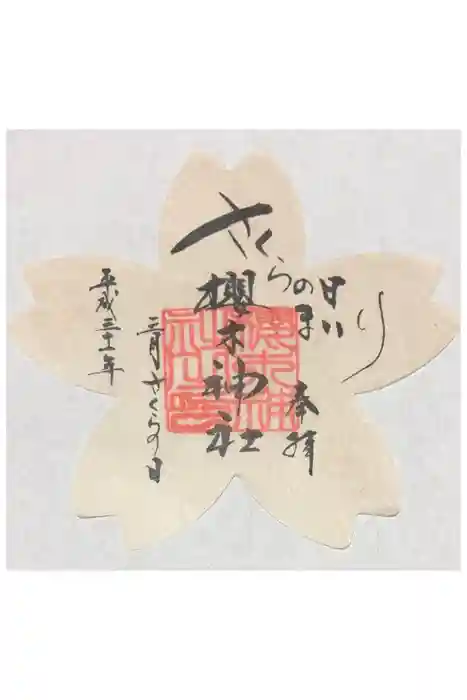 さくらの日まいり
奉拝
櫻木神社
平成三十一年
三月さくらの日